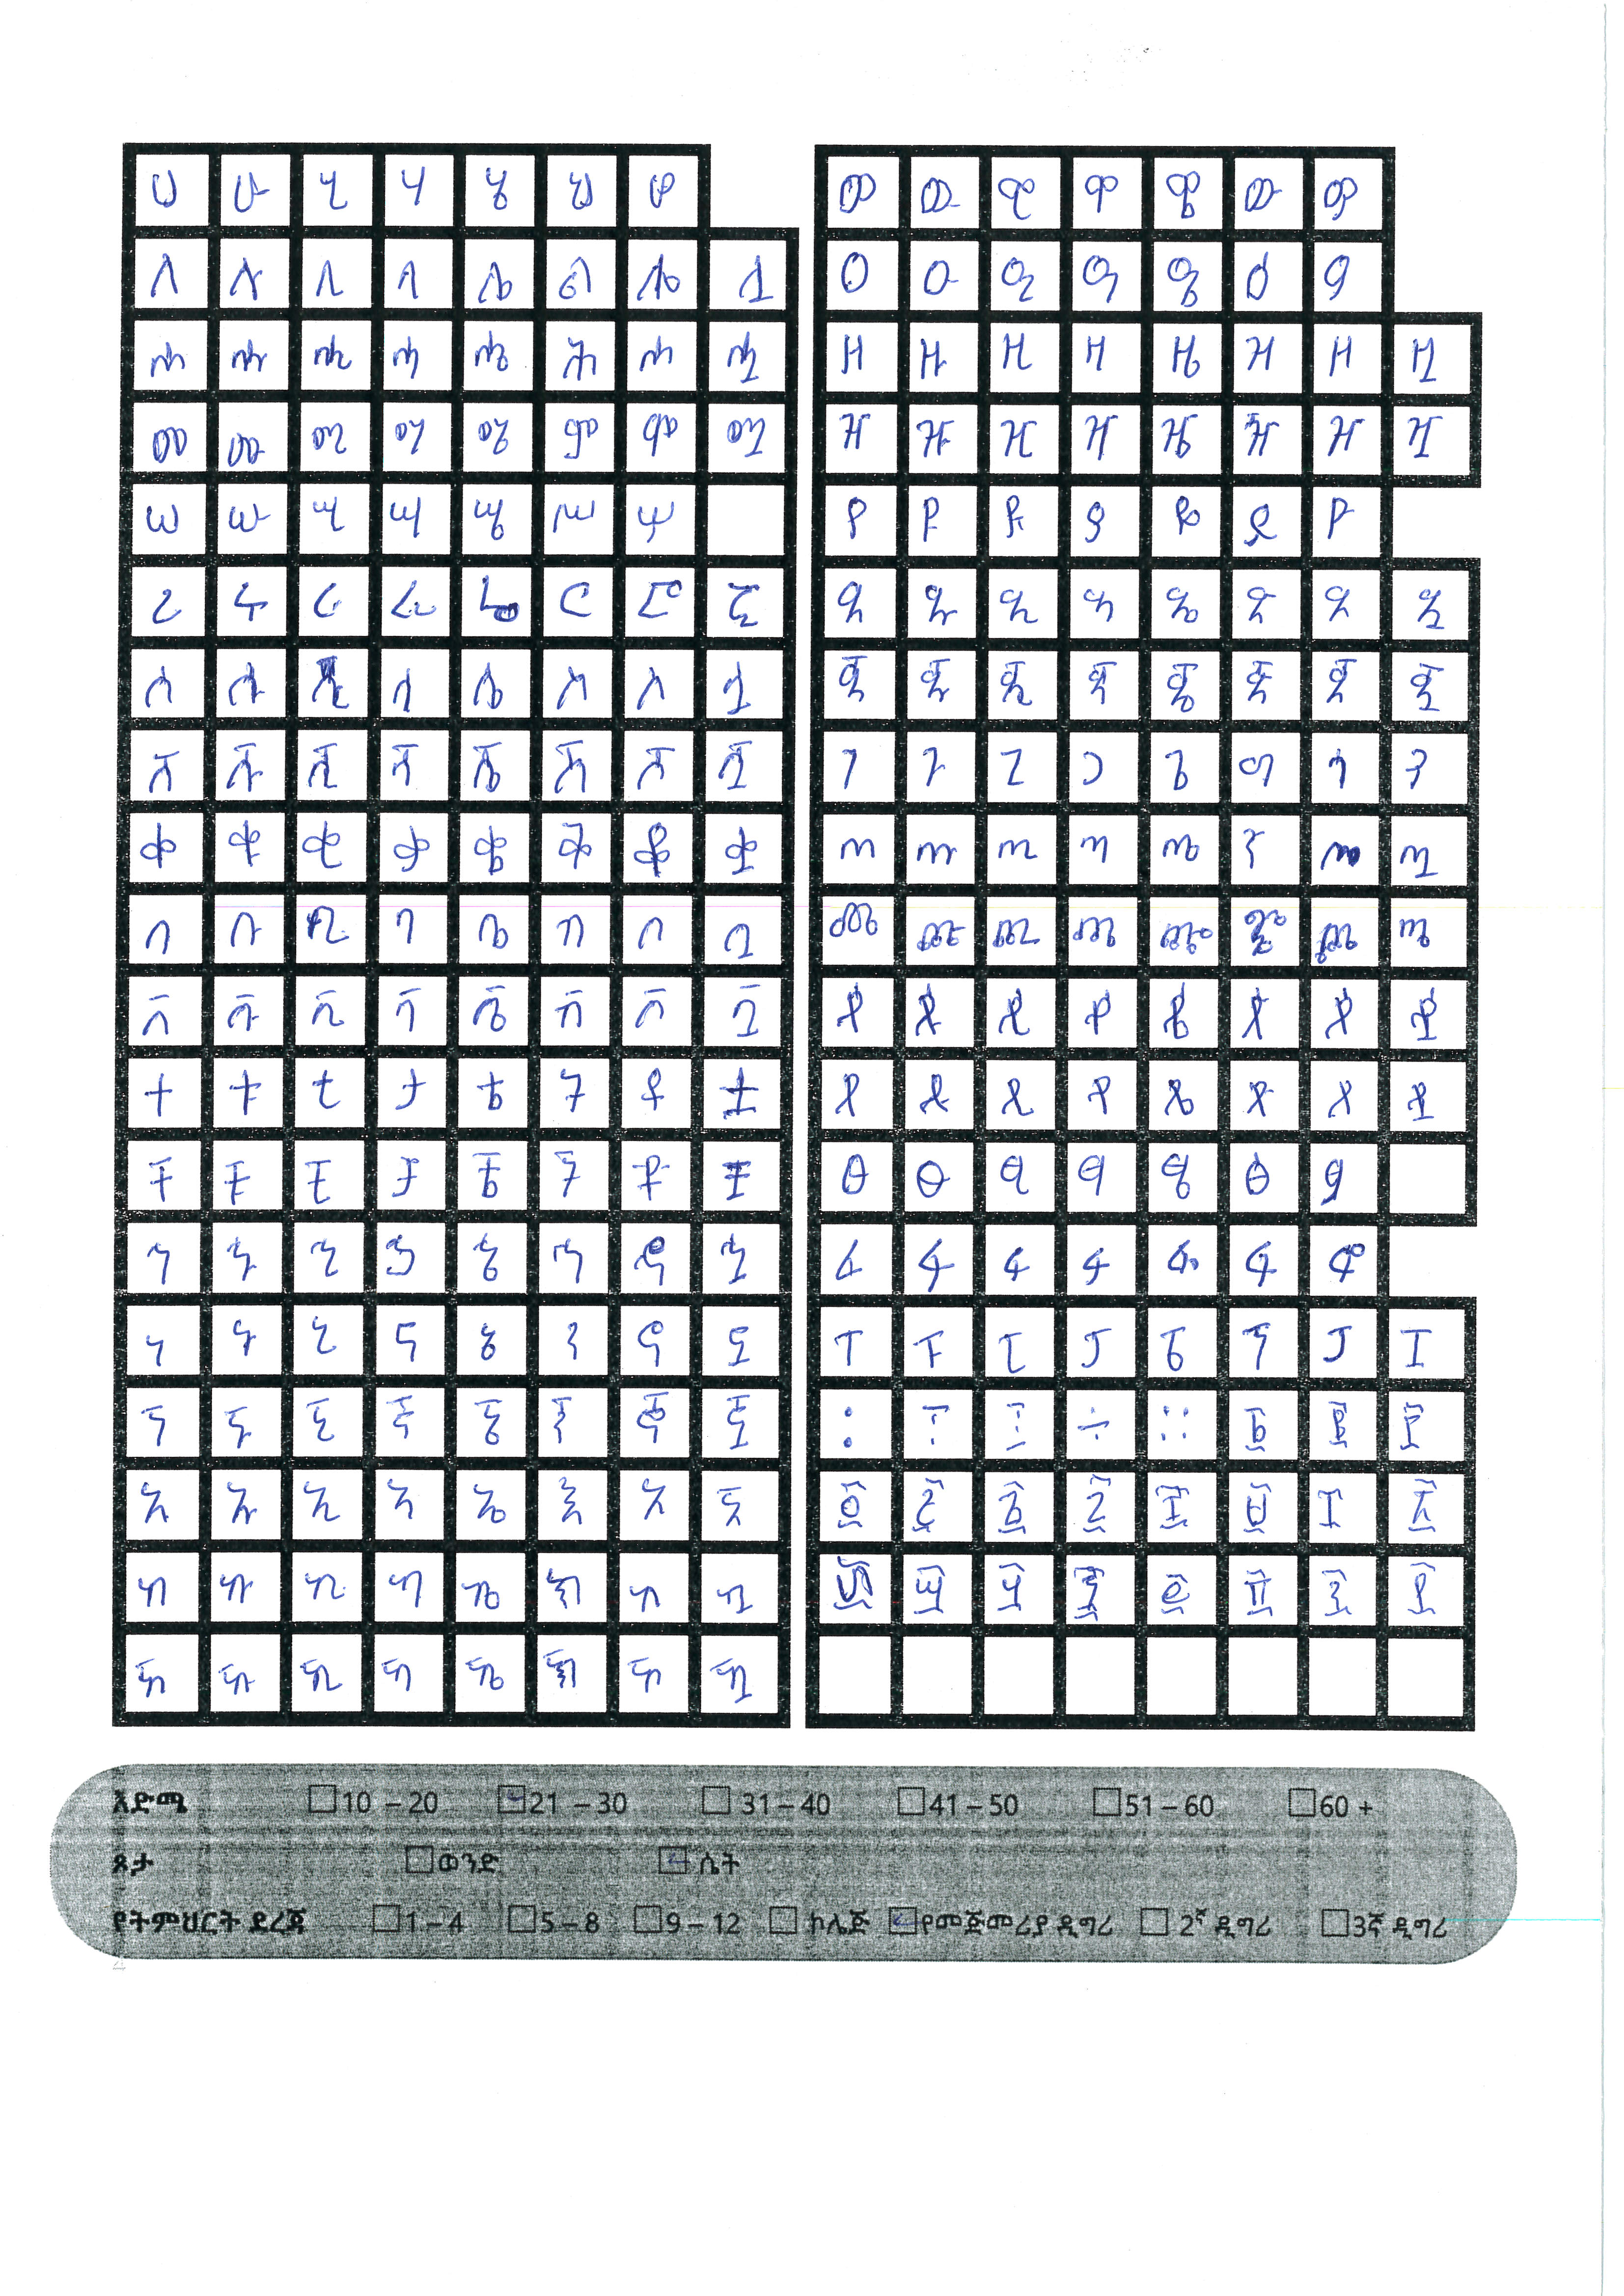 ሀ ሁ ሂ ሃ ሄ ህ ሆ
ለ ሉ ሊ ላ ሌ ል ሎ ሏ
ሐ ሑ ሒ ሓ ሔ ሕ ሖ ሗ
መ ሙ ሚ ማ ሜ ም ሞ ሟ
ሠ ሡ ሢ ሣ ሤ ሥ ሦ
ረ ሩ ሪ ራ ሬ ር ሮ ሯ
ሰ ሱ ሲ ሳ ሴ ስ ሶ ሷ
ሸ ሹ ሺ ሻ ሼ ሽ ሾ ሿ
ቀ ቁ ቂ ቃ ቄ ቅ ቆ ቋ
በ ቡ ቢ ባ ቤ ብ ቦ ቧ
ቨ ቩ ቪ ቫ ቬ ቭ ቮ ቯ
ተ ቱ ቲ ታ ቴ ት ቶ ቷ
ቸ ቹ ቺ ቻ ቼ ች ቾ ቿ
ኀ ኁ ኂ ኃ ኄ ኅ ኆ ኋ
ነ ኑ ኒ ና ኔ ን ኖ ኗ
ኘ ኙ ኚ ኛ ኜ ኝ ኞ ኟ
አ ኡ ኢ ኣ ኤ እ ኦ ኧ
ከ ኩ ኪ ካ ኬ ክ ኮ ኳ
ኸ ኹ ኺ ኻ ኼ ኽ ኾ ዃ
ወ ዉ ዊ ዋ ዌ ው ዎ
ዐ ዑ ዒ ዓ ዔ ዕ ዖ
ዘ ዙ ዚ ዛ ዜ ዝ ዞ ዟ
ዠ ዡ ዢ ዣ ዤ ዥ ዦ ዧ
የ ዩ ዪ ያ ዬ ይ ዮ
ደ ዱ ዲ ዳ ዴ ድ ዶ ዷ
ጀ ጁ ጂ ጃ ጄ ጅ ጆ ጇ
ገ ጉ ጊ ጋ ጌ ግ ጎ ጓ
ጠ ጡ ጢ ጣ ጤ ጥ ጦ ጧ
ጨ ጩ ጪ ጫ ጬ ጭ ጮ ጯ
ጰ ጱ ጲ ጳ ጴ ጵ ጶ ጷ
ጸ ጹ ጺ ጻ ጼ ጽ ጾ ጿ
ፀ ፁ ፂ ፃ ፄ ፅ ፆ
ፈ ፉ ፊ ፋ ፌ ፍ ፎ
ፐ ፑ ፒ ፓ ፔ ፕ ፖ ፗ
፡ ፣ ፤ ÷ ። ፩ ፪ ፫
፬ ፭ ፮ ፯ ፰ ፱ ፲ ፳
፴ ፵ ፶ ፷ ፸ ፹ ፺ ፻
እድሜ 10 – 20 21 – 30 31 – 40 41 – 50 51 – 60 60 +
ጾታ ወንድ ሴት
የትምህርት ደረጃ 1 – 4 5 – 8 9 – 12 ኮሌጅ የመጀመሪያ ዲግሪ 2ኛ ዲግሪ 3ኛ ዲግሪ